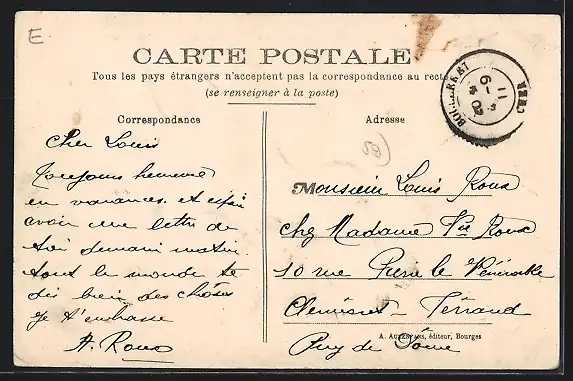 E
CARTE POSTALE
Tous les pays étrangers n'acceptent pas la correspondance au recto
(se renseigner à la poste)
Correspondance
Cher Louis
Toujours heureux
en vacances, et
avoir une lettre de
toi demain matin.
tout le monde te
dis bien des choses
Je t'embrasse
A. Roux
Adresse
59
Monsieur Louis Roux
chez Madame Vve Roux
10 rue Pierre le Vénérable
Clermont-Ferrand
A. Auxenfans, éditeur, Bourges
Puy de Dôme
CHER